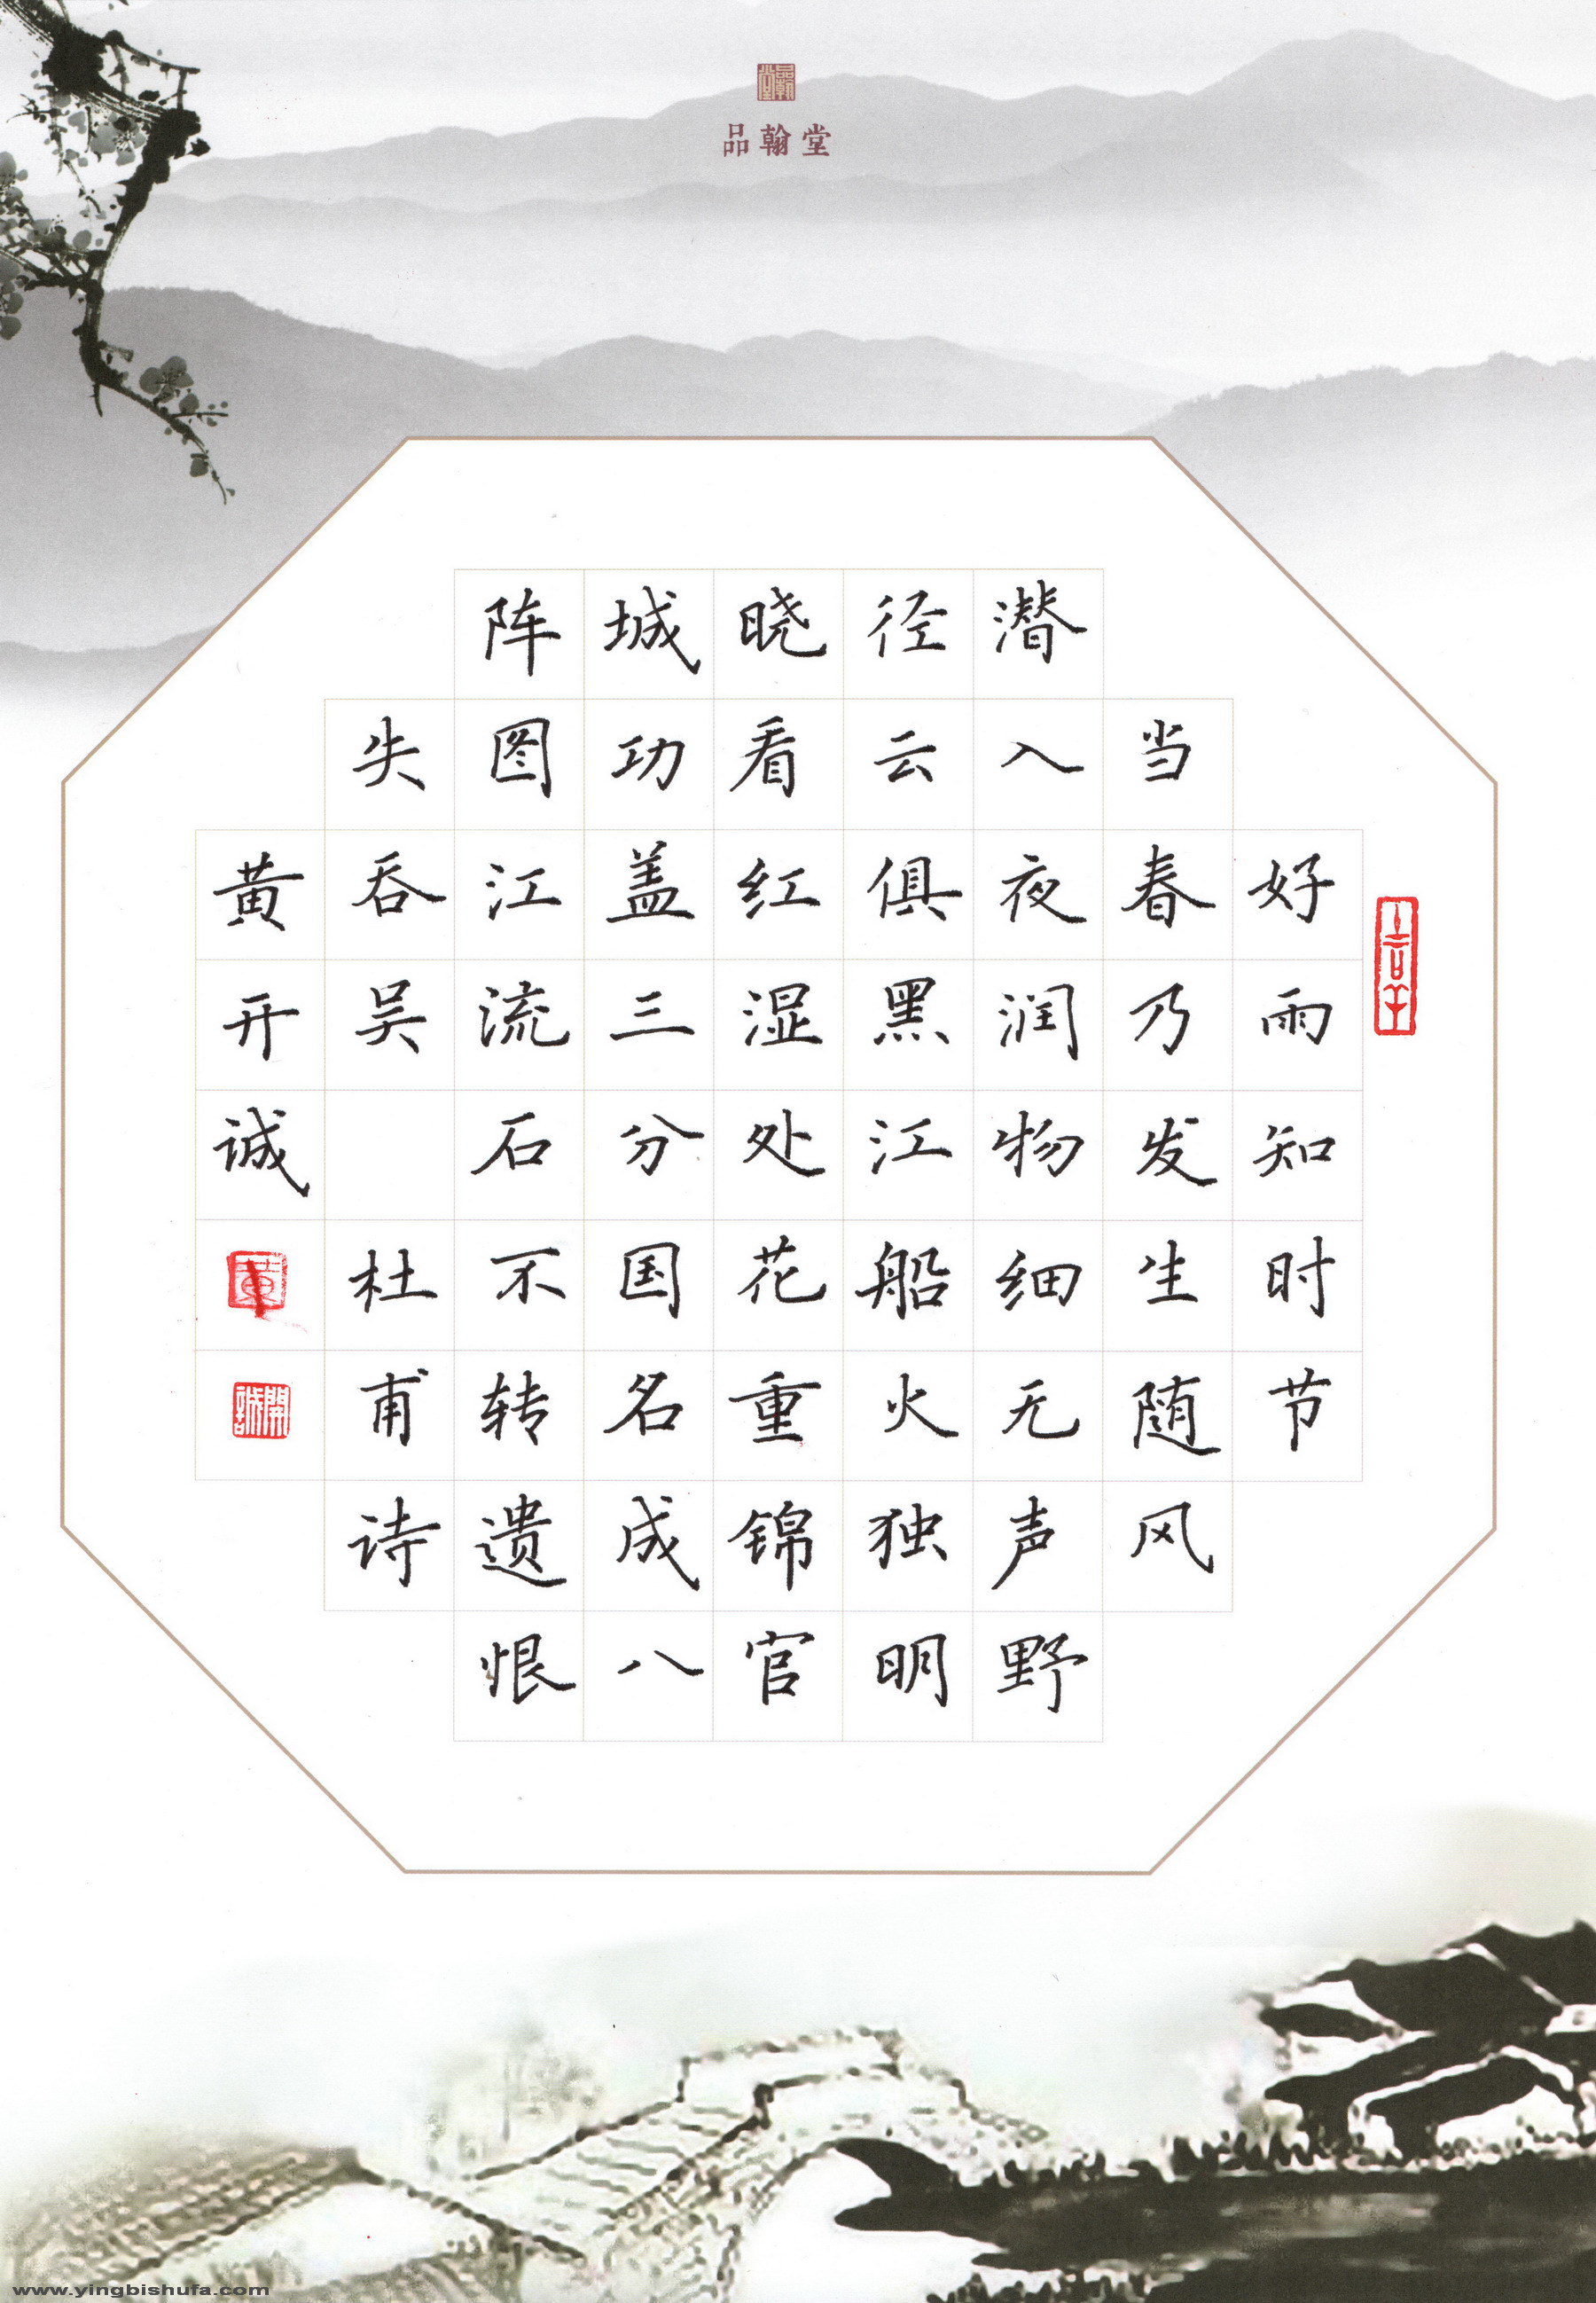 品翰堂
品翰堂
好雨知时节
当春乃发生随风
潜入夜润物细无声野
径云俱黑江船火独明
晓看红湿处花重锦官
城功盖三分国名成八
阵图江流石不转遗恨
失吞吴 杜甫诗
黄开诚
黄
開誠
www.yingbishufa.com